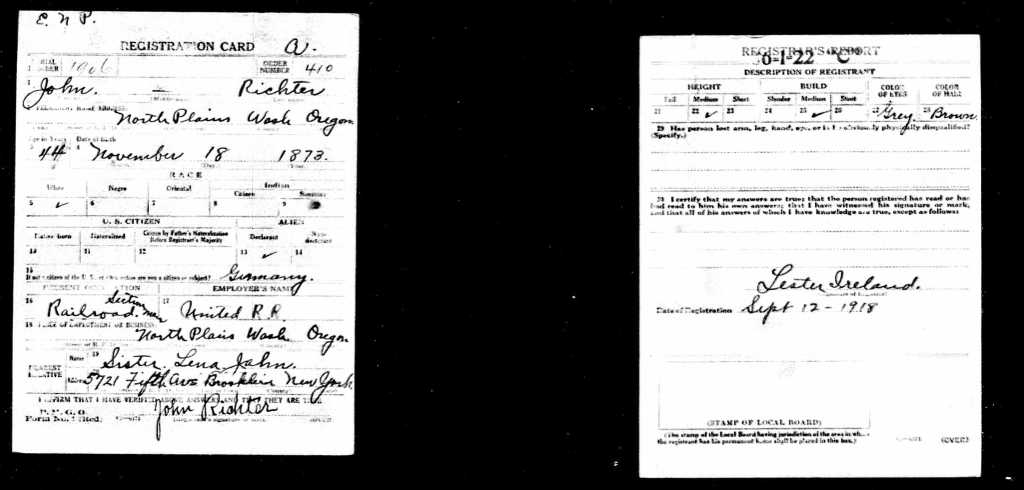 E. N. P.
REGISTRATION CARD A.
SERIAL NUMBER 1906 ORDER NUMBER 410
1 John. — Richter
PERMANENT HOME ADDRESS
North Plains Wash Oregon
Age in Years Date of Birth
44 4 November 18 1873.
RACE
White Negro Oriental Indian
Citizen
5 ✓ 6 7 8 9
U. S. CITIZEN ALIEN
Native born Naturalized Citizen by Father's Naturalization Before Registrant's Majority Declarant Non-declarant
10 11 12 13 ✓ 14
15 If not a citizen of the U. S. of what nation are you a citizen or subject? Germany.
PRESENT OCCUPATION EMPLOYER'S NAME
16 Railroad. Section man 17 United R. R.
18 PLACE OF EMPLOYMENT OR BUSINESS
North Plains Wash Oregon
NEAREST RELATIVE Name 19 Sister. Lena Jahn.
Address 5721 Fifth Ave Brooklin New York
I AFFIRM THAT I HAVE VERIFIED ABOVE ANSWERS AND THAT THEY ARE TRUE
John Richter
P. M. G. O.
Form No. 1 (Red) (OVER)
REGISTRAR'S REPORT
36-1-22 "C"
DESCRIPTION OF REGISTRANT
HEIGHT BUILD COLOR OF EYES COLOR OF HAIR
Tall Medium Short Slender Medium Stout
21 22 ✓ 23 24 25 ✓ 26 27 Grey. 28 Brown.
29 Has person lost arm, leg, hand, eye, or is he obviously physically disqualified?
(Specify.)
30 I certify that my answers are true; that the person registered has read or has
had read to him his own answers; that I have witnessed his signature or mark,
and that all of his answers of which I have knowledge are true, except as follows:
Lester Ireland.
Date of Registration Sept 12 - 1918
(STAMP OF LOCAL BOARD)
(The stamp of the Local Board having jurisdiction of the area in which
the registrant has his permanent home shall be placed in this box.) (OVER)